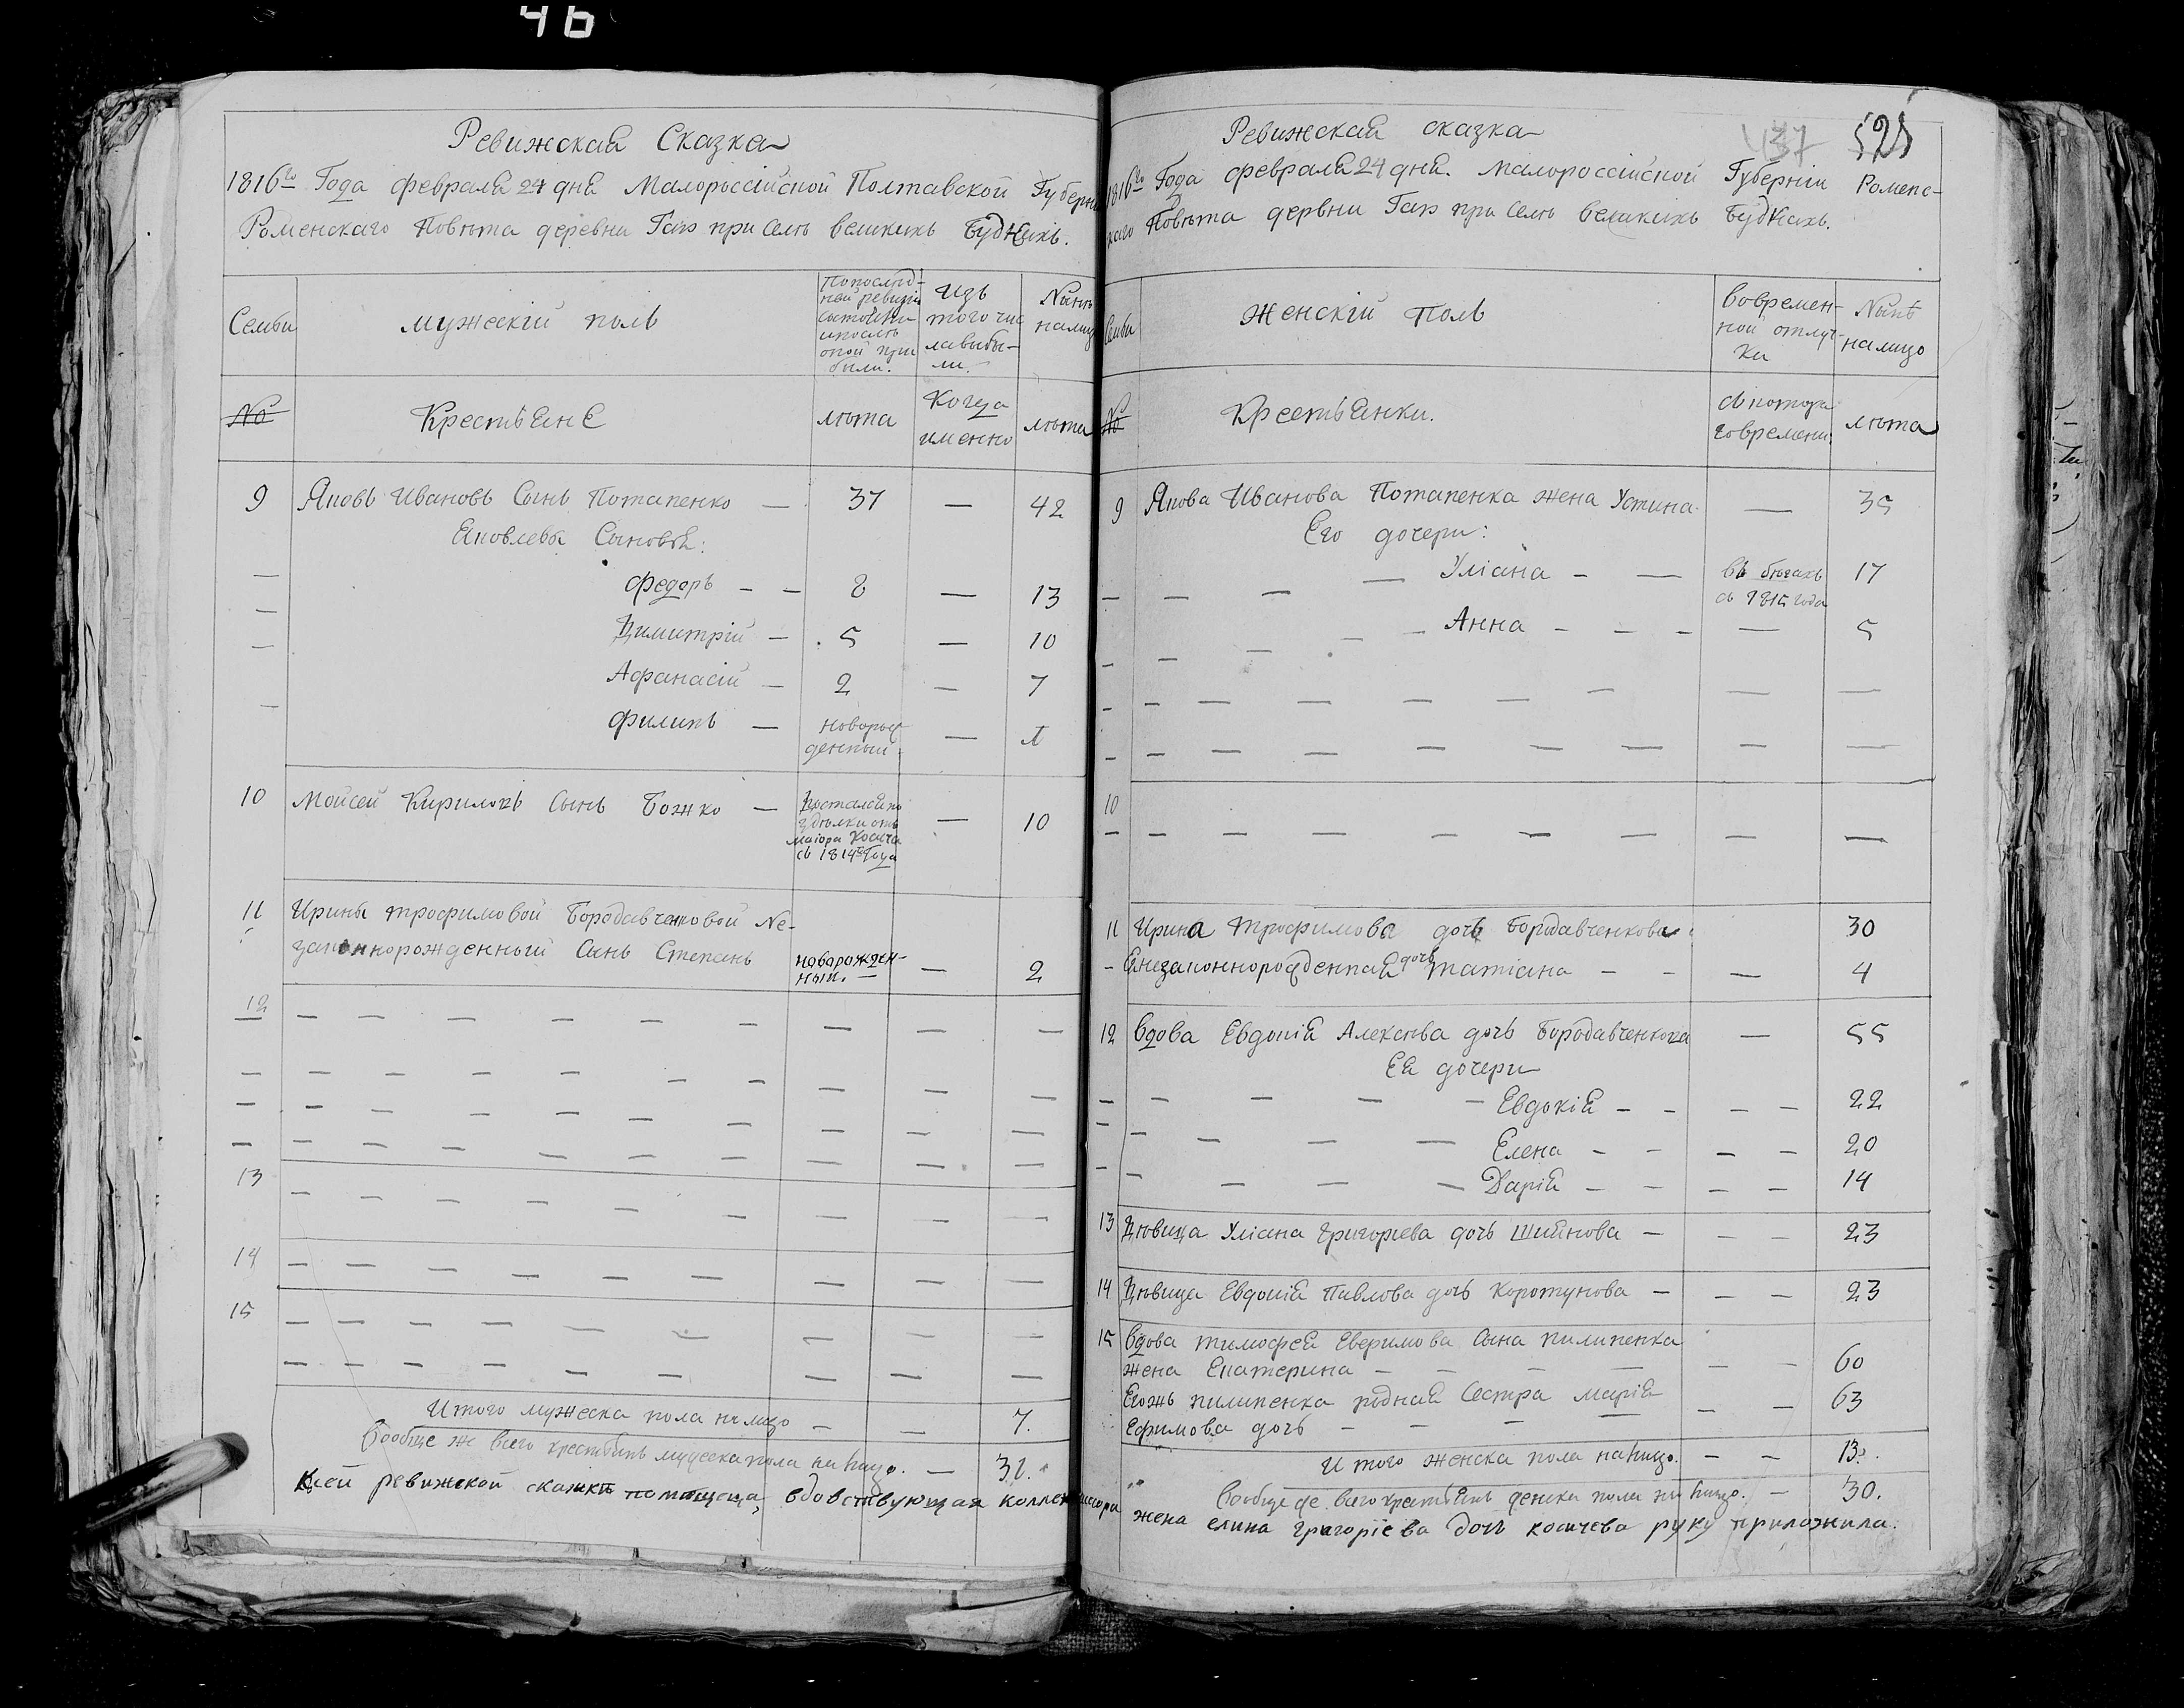 46
Ревижская Сказка
1816го Года февраля 24 дня Малороссійской Полтавской Губерн
Роменскаго Повѣта деревни Гаю при Селѣ великихъ Будкахъ.
Семьи
мужескій полъ
По послѣд-
ней ревизіи
состояли
и послѣ
оной при
были.
Изъ
того чис
ла выбы-
ли.
Нынѣ
на лицо
№
Крестьяне
лѣта
Когда
именно
лѣта
9 Яковъ Ивановъ Сынъ Потапенко — 37 — 42
Яковлевы Сыновья:
— Федоръ — — 8 — 13
— Димитрій — 5 — 10
— Афанасій — 2 — 7
— Филипъ — новорож
денный — 1
10 Мойсей Кириловъ Сынъ Божко — Досталси по
здѣлки отъ
маіора Косича
съ 1814го Года — 10
11 Ирины трофимовой Бородавченковой Не-
законнорожденный Сынъ Степанъ новорожден-
ный. — — 2
12
13
14
15
Итого мужеска пола на лицо — — 7.
Вообще же всего крестьянъ мужеска пола на лицо. — 31.
К сей ревижской скаски помѣщеца вдовствующая
Ревижская сказка
437 525
1816го Года февраля 24 дня. Малороссійской Губерніи Роменс-
каго Повѣта дервни Гаю при Селѣ великихъ Будкахъ.
Семьи
Женскій Полъ
Во времен-
ной отлуч-
ки
Нынѣ
на лицо
№
Крестьянки.
съ котора
го времени
лѣта
9 Якова Иванова Потапенка жена Устина — 35
Его дочери:
— Уліана — — въ бѣгахъ
съ 1815 года 17
— Анна — — — — 5
10
11 Ирина Трофимова дочь Бородавченкова 30
— Ея незаконнорожденная дочь Татіана — — — 4
12 Вдова Евдокія Алексѣва дочь Бородавченкова — 55
Ея дочери
— Евдокія — — — — 22
— Елена — — — — 20
— Дарія — — — — 14
13 Дѣвица Уліана Григоріева дочь Шиянова — — — 23
14 Дѣвица Евдокія Павлова дочь Коротунова — — — 23
15 Вдова Тимофея Еверимова Сына пилипенка
жена Екатерина — — — — — 60
Егожъ пилипенка родная Сестра Марія — — 63
Ефимова дочь — — — —
Итого женска пола на лицо. — — 13.
Вообще же всего крестьянъ женска пола на лицо. — 30.
жена елина григоріева дочь косичева руку приложила.